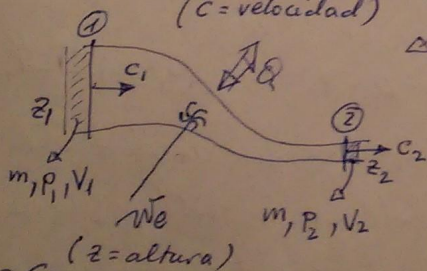 (C = velocidad)
①
C₁
Q
Z₁
②
C₂
Z₂
m, P₁, V₁
We
m, P₂, V₂
(Z = altura)